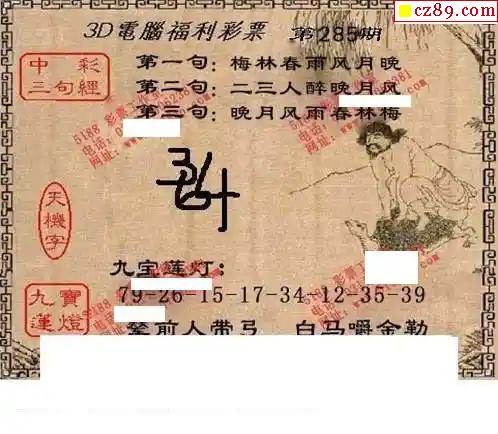 cz89.com
3D電腦福利彩票 第285期
中彩
三句經
第一句：梅林春雨风月晚
第二句：二三人醉晚月风
第三句：晚月风雨春林梅
天機字
九宝莲灯：
79-26-15-17-34-12-35-39
九寶
蓮燈
前人带弓 白马嚼金勒